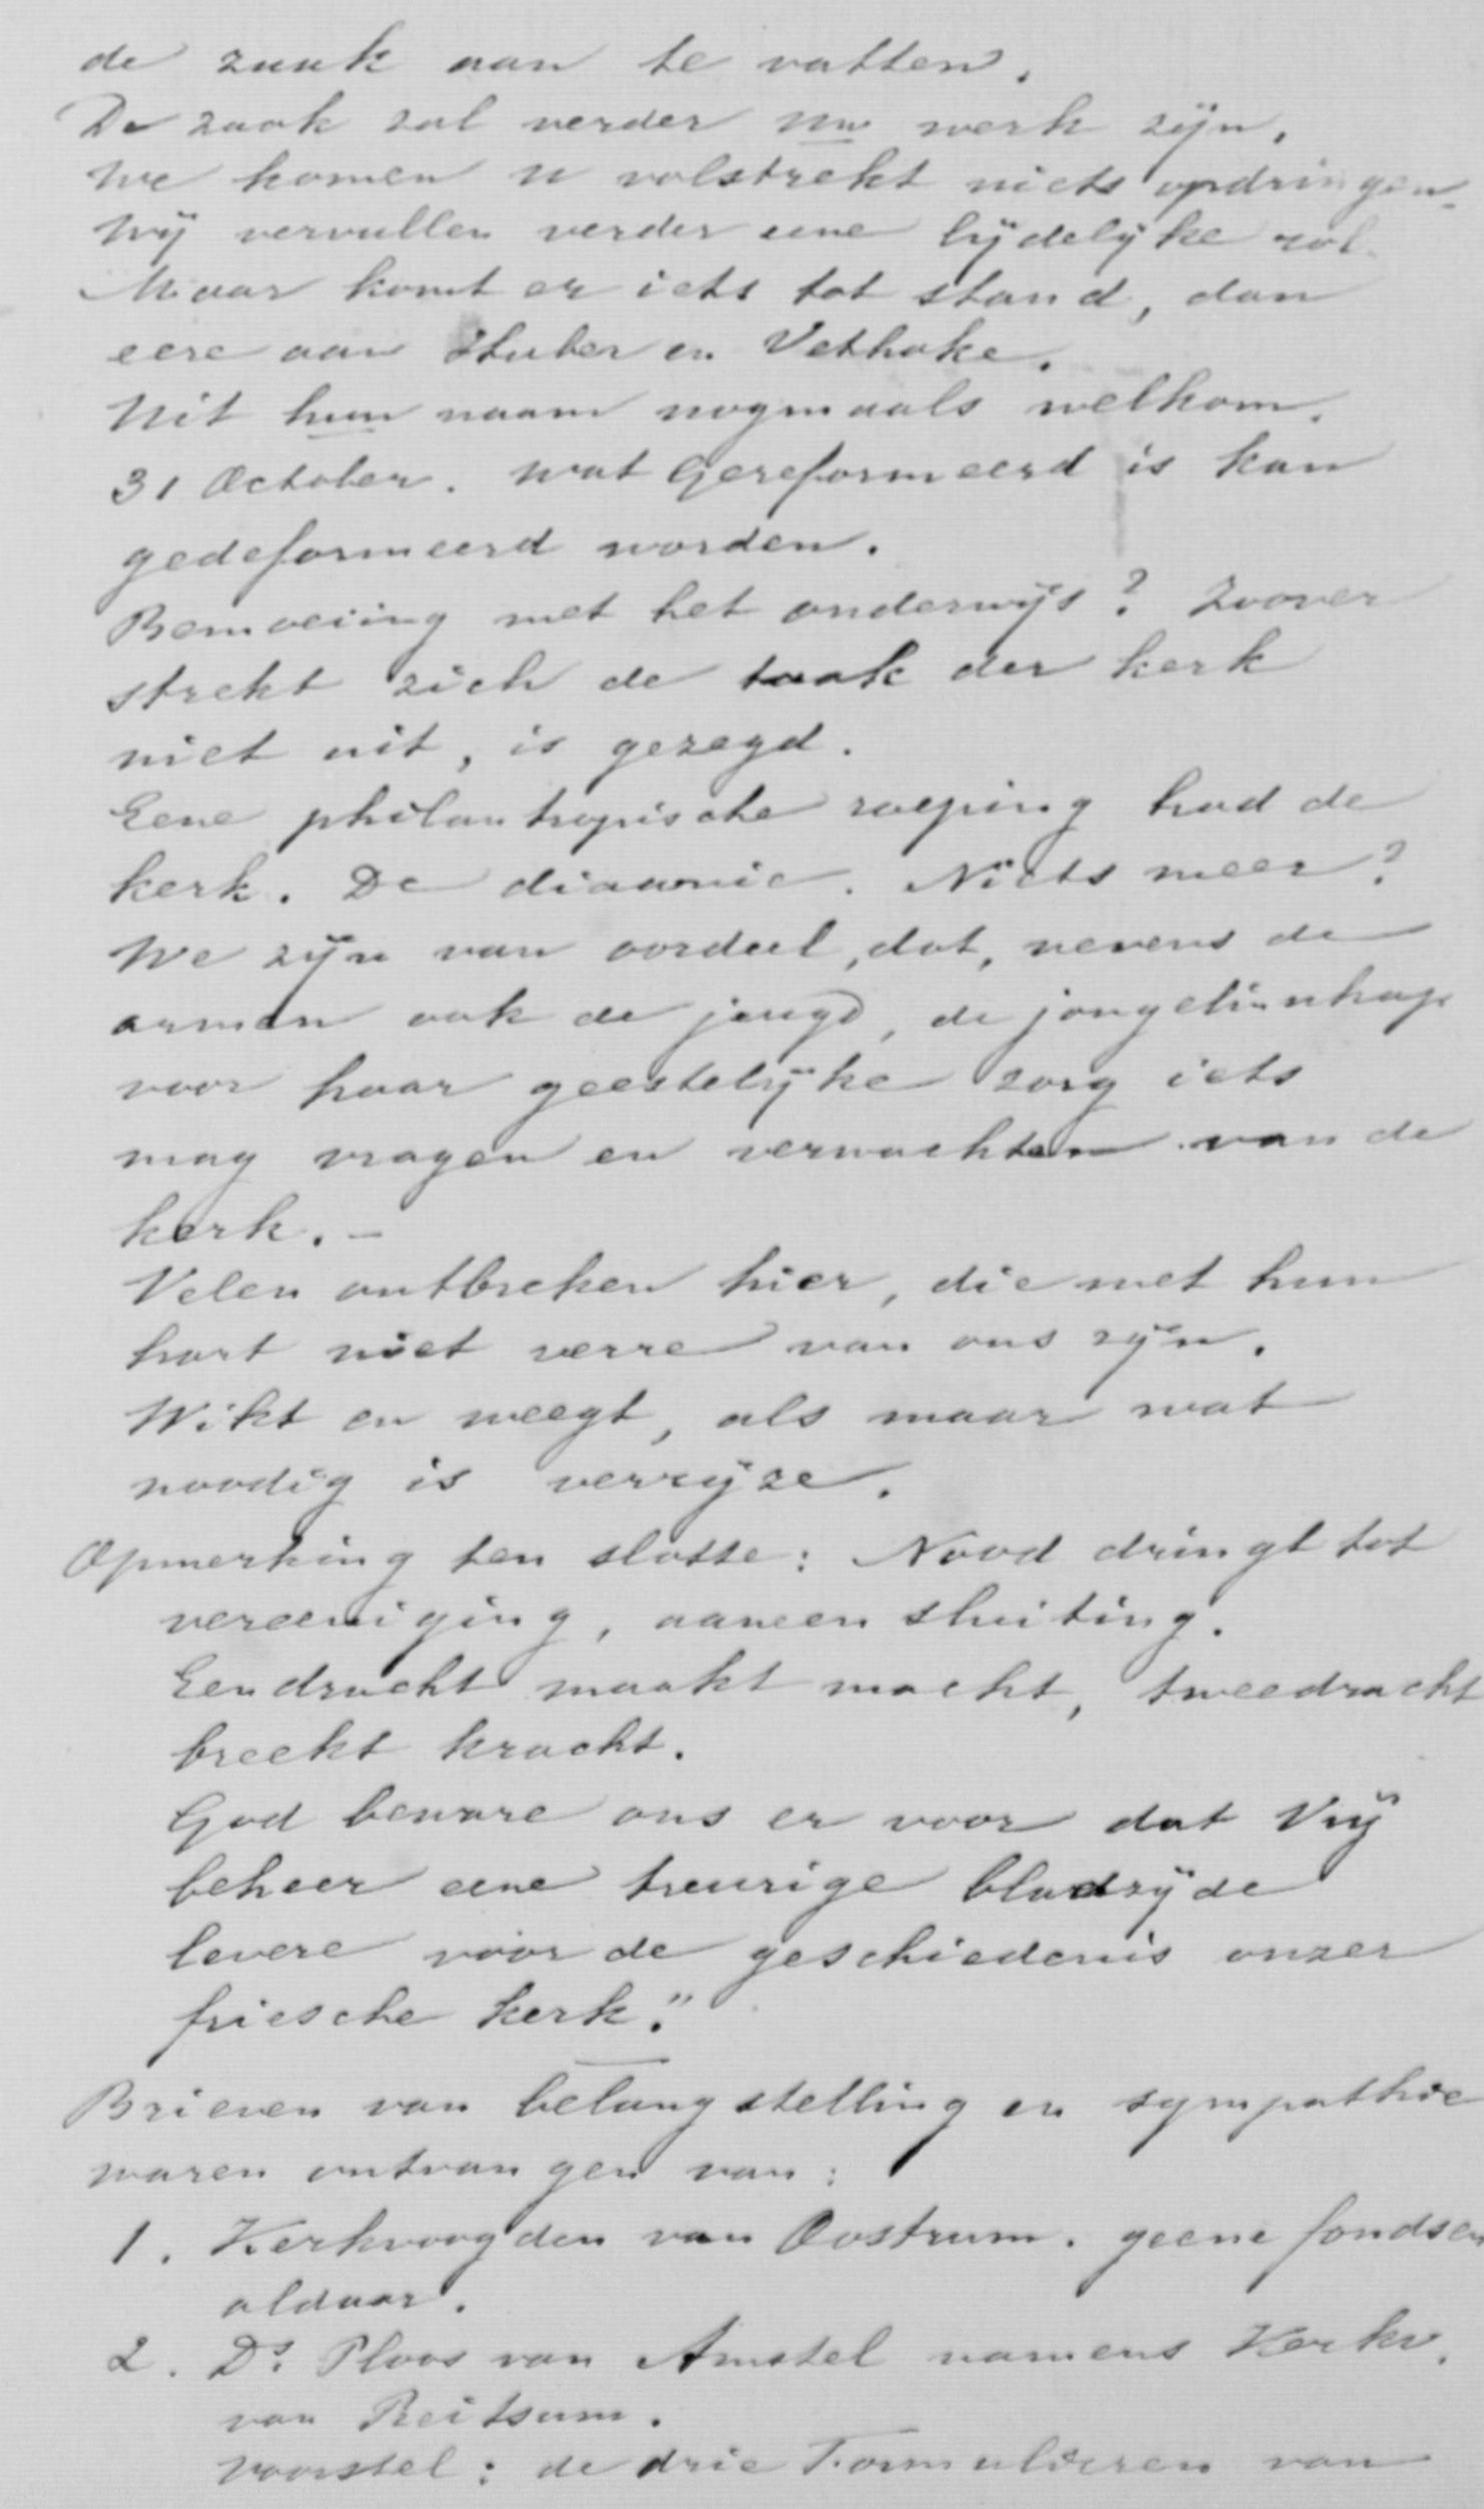 de zaak aan te vatten.
De zaak zal verder uw werk zijn.
We komen u volstrekt niets opdringen.
Wij vervullen verder eene lijdelijke rol.
Maar komt er iets tot stand, dan
eere aan Stuber en Vethake.
Uit hun naam nogmaals welkom.
31 October. Wat Gereformeerd is kan
gedeformeerd worden.
Bemoeiing met het onderwijs? Zoover
strekt zich de taak der kerk
niet uit, is gezegd.
Eene philantropische roeping had de
kerk. De diaconie. Niets meer?
We zijn van oordeel, dat, nevens de
armen ook de jeugd, de jongelingschap
voor haar geestelijke zorg iets
mag vragen en verwachten van de
kerk. –
Velen ontbreken hier, die met hun
hart niet verre van ons zijn.
Wikt en weegt, als maar wat
noodig is verrijze.
Opmerking ten slotte: Nood dringt tot
vereeniging, aaneensluiting.
Eendracht maakt macht, tweedracht
breekt kracht.
God beware ons er voor dat Vrij
beheer eene treurige bladzijde
levere voor de geschiedenis onzer
friesche kerk."
Brieven van belangstelling en sympathie
waren ontvangen van:
1. Kerkvoogden van Oostrum. geene fondsen
aldaar.
2. Ds. Ploos van Amstel namens Kerkv.
van Reitsum.
Voorstel: de drie Formulieren van